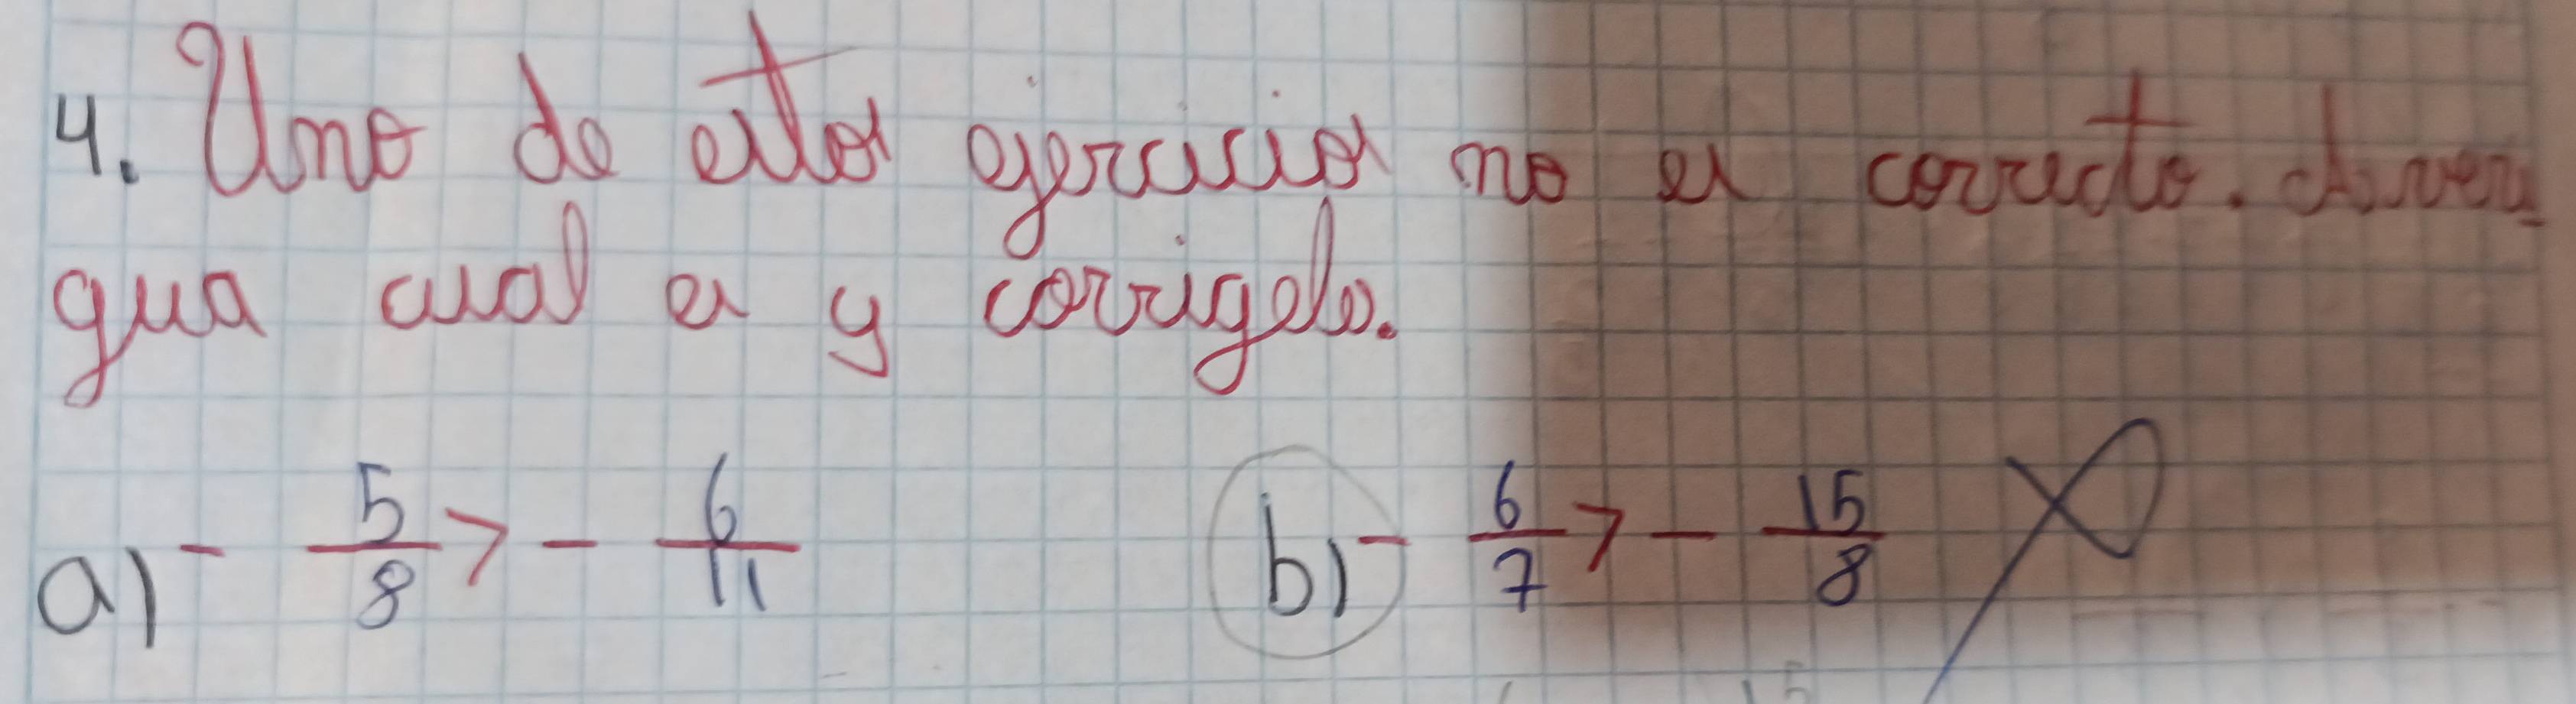 4. Uno de estos ejercicios no es correcto. Averi
gua cual es y corrigelo.
a) - 5/8 > - 6/11 b) - 6/7 > - 15/8